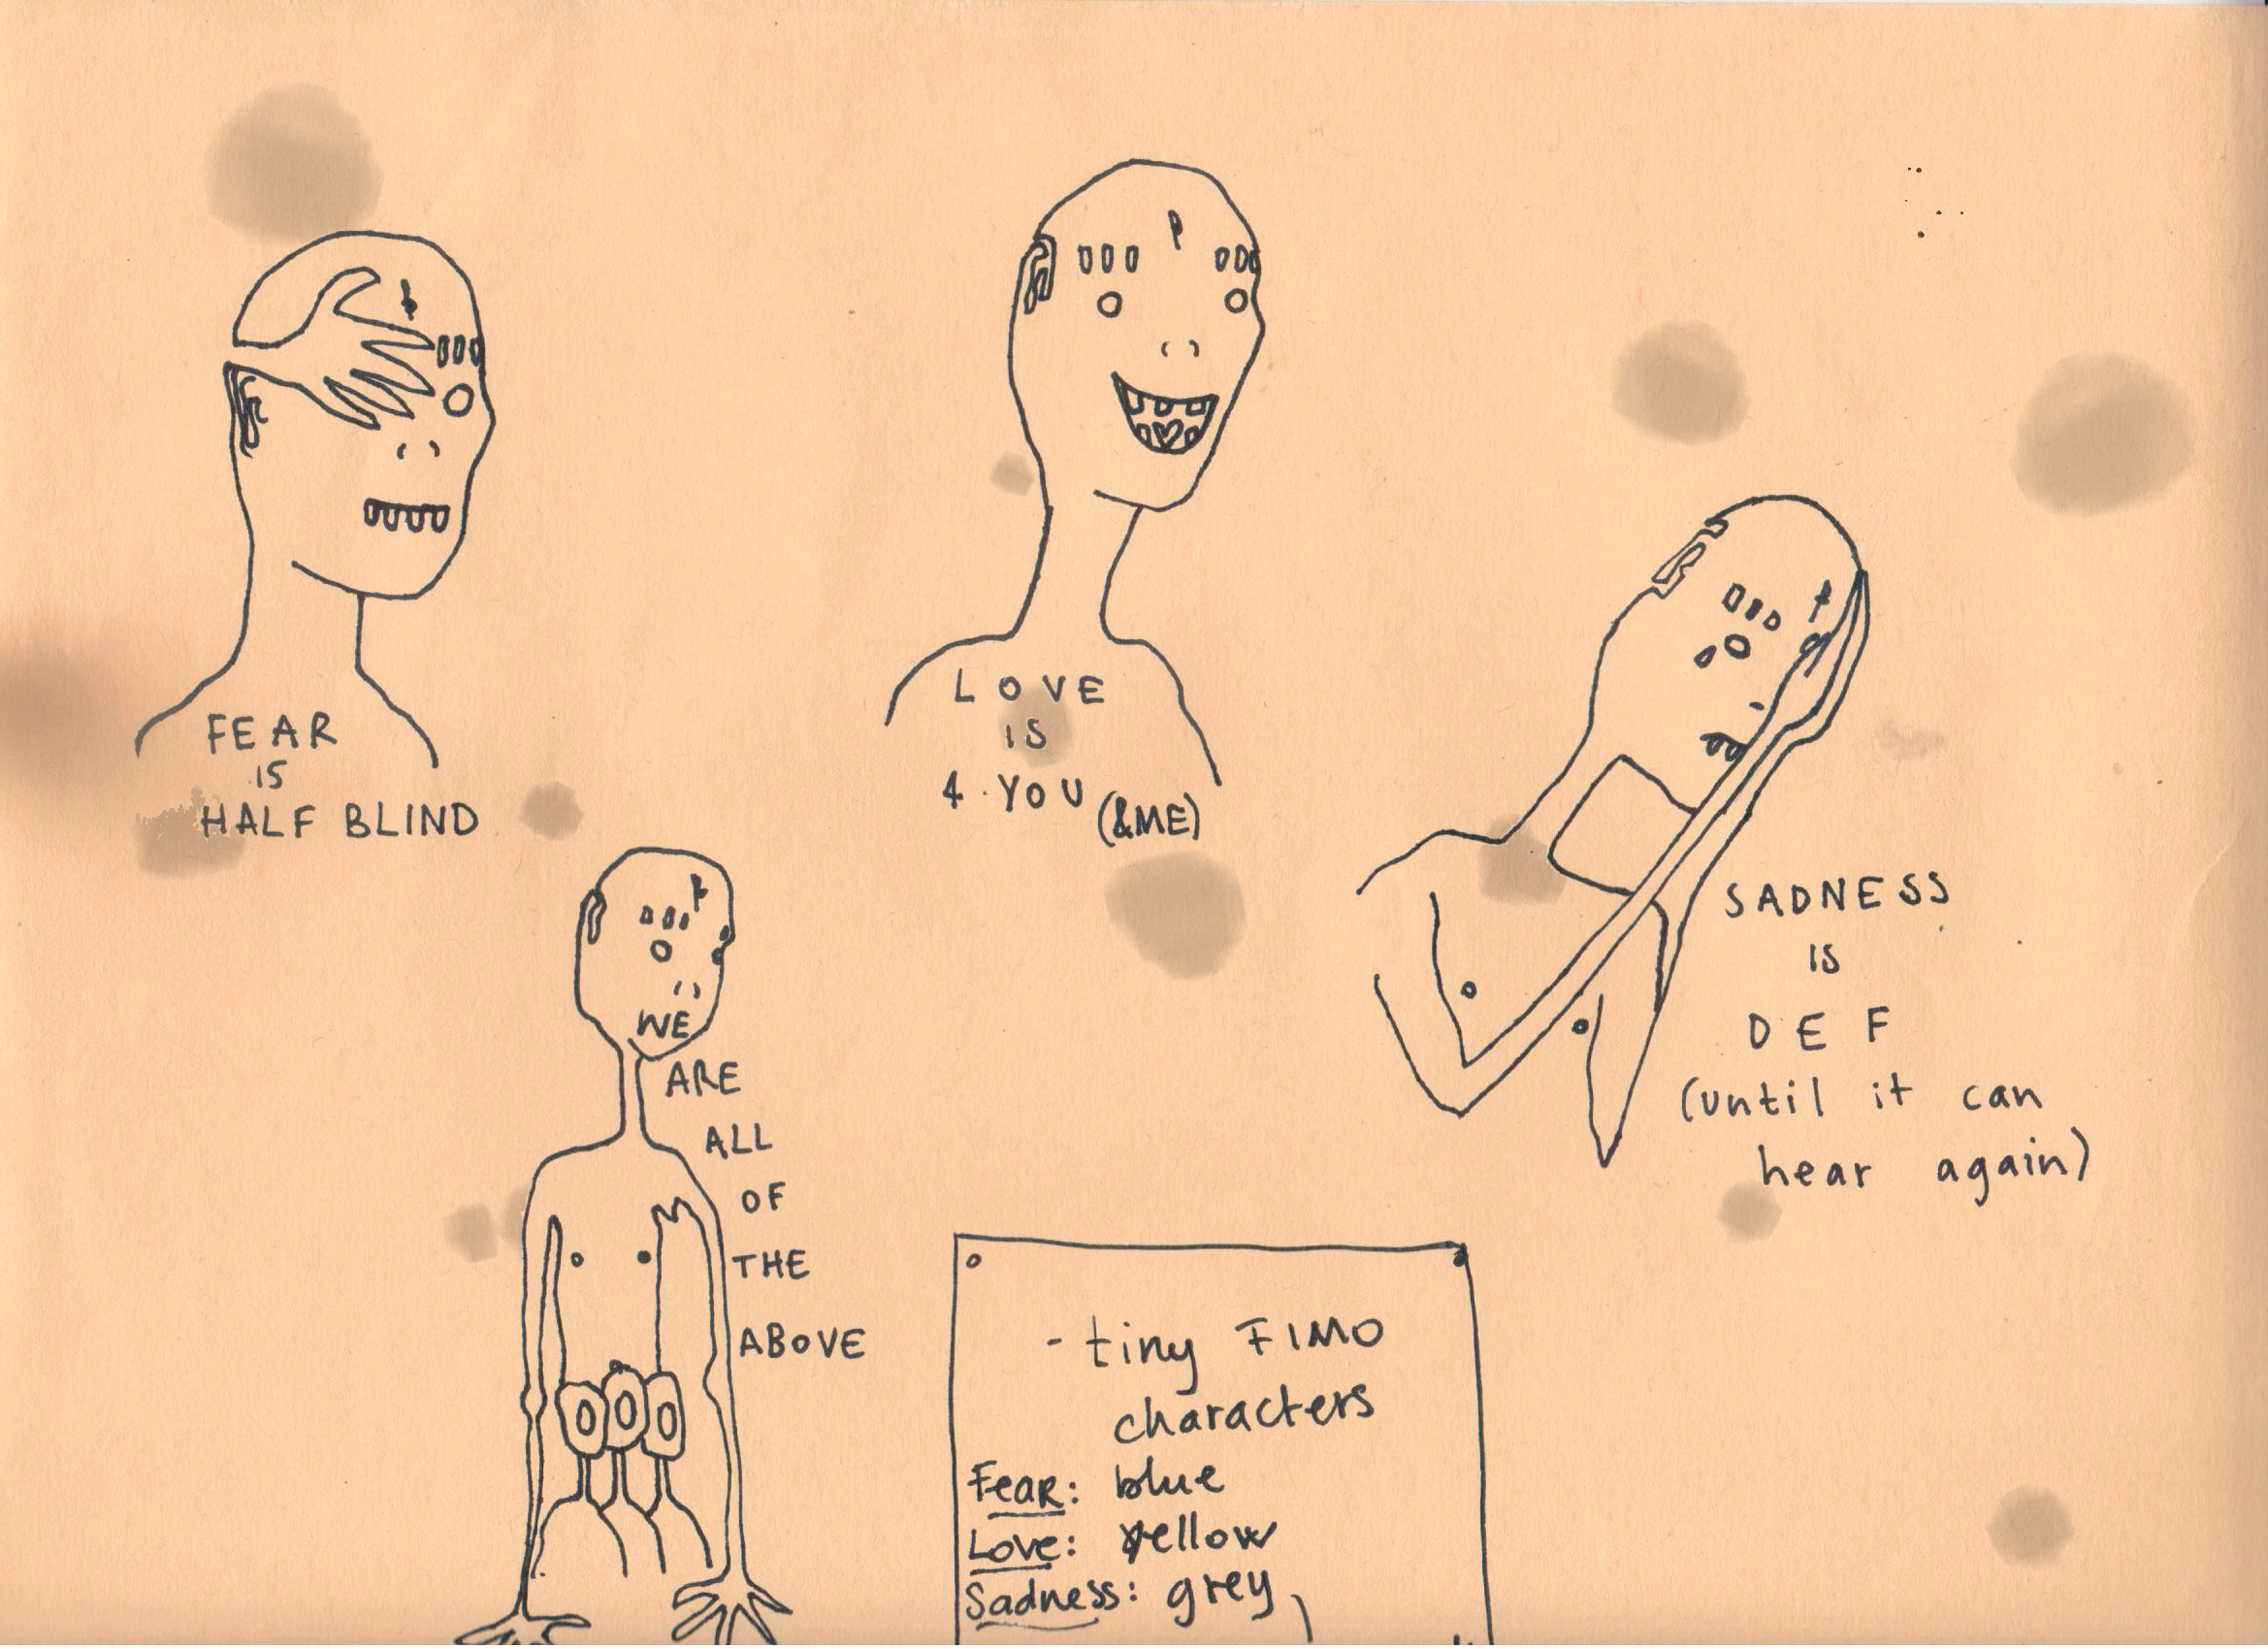 FEAR
IS
HALF BLIND
LOVE
IS
4 YOU (&ME)
SADNESS
IS
DEF
(until it can
hear again)
WE
ARE
ALL
OF
THE
ABOVE
- tiny FIMO
characters
Fear: blue
Love: Yellow
Sadness: grey